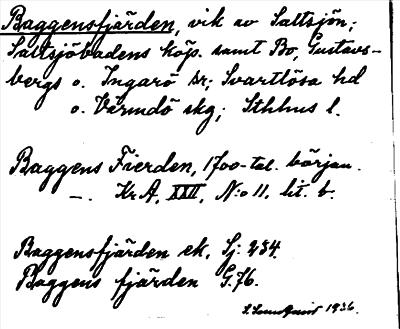 Baggensfjärden, vik av Saltsjön;
Saltsjöbadens köp. samt Bo, Gustavs-
bergs o. Ingarö sr; Svartlösa hd
o. Värmdö skg; Sthlms l.
Baggens Fierden, 1700-tal. början.
—. Kr A, XXII, N:o 11, lit. b.
Baggensfjärden ek. Sj: 234.
Baggens fjärden G.76.
1936.